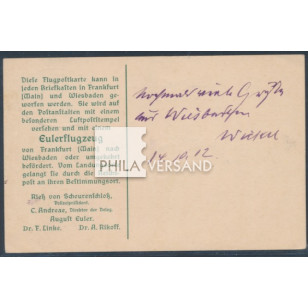 Diese Flugpostkarte kann in
jeden Briefkasten in Frankfurt
(Main) und Wiesbaden ge-
worfen werden. Sie wird auf
den Postanstalten mit einem
besonderen Luftpoststempel
versehen und mit einem
Eulerflugzeug
von Frankfurt (Main) nach
Wiesbaden oder umgekehrt
befördert. Vom Landungs
gelangt sie durch die
post an ihren Bestimmungsort.
C. Andreae,
August Euler.
Dr. F. Linke. Dr. A.
Nochmal viele Grüße
aus Wiesbaden
12
PHILA VERSAND